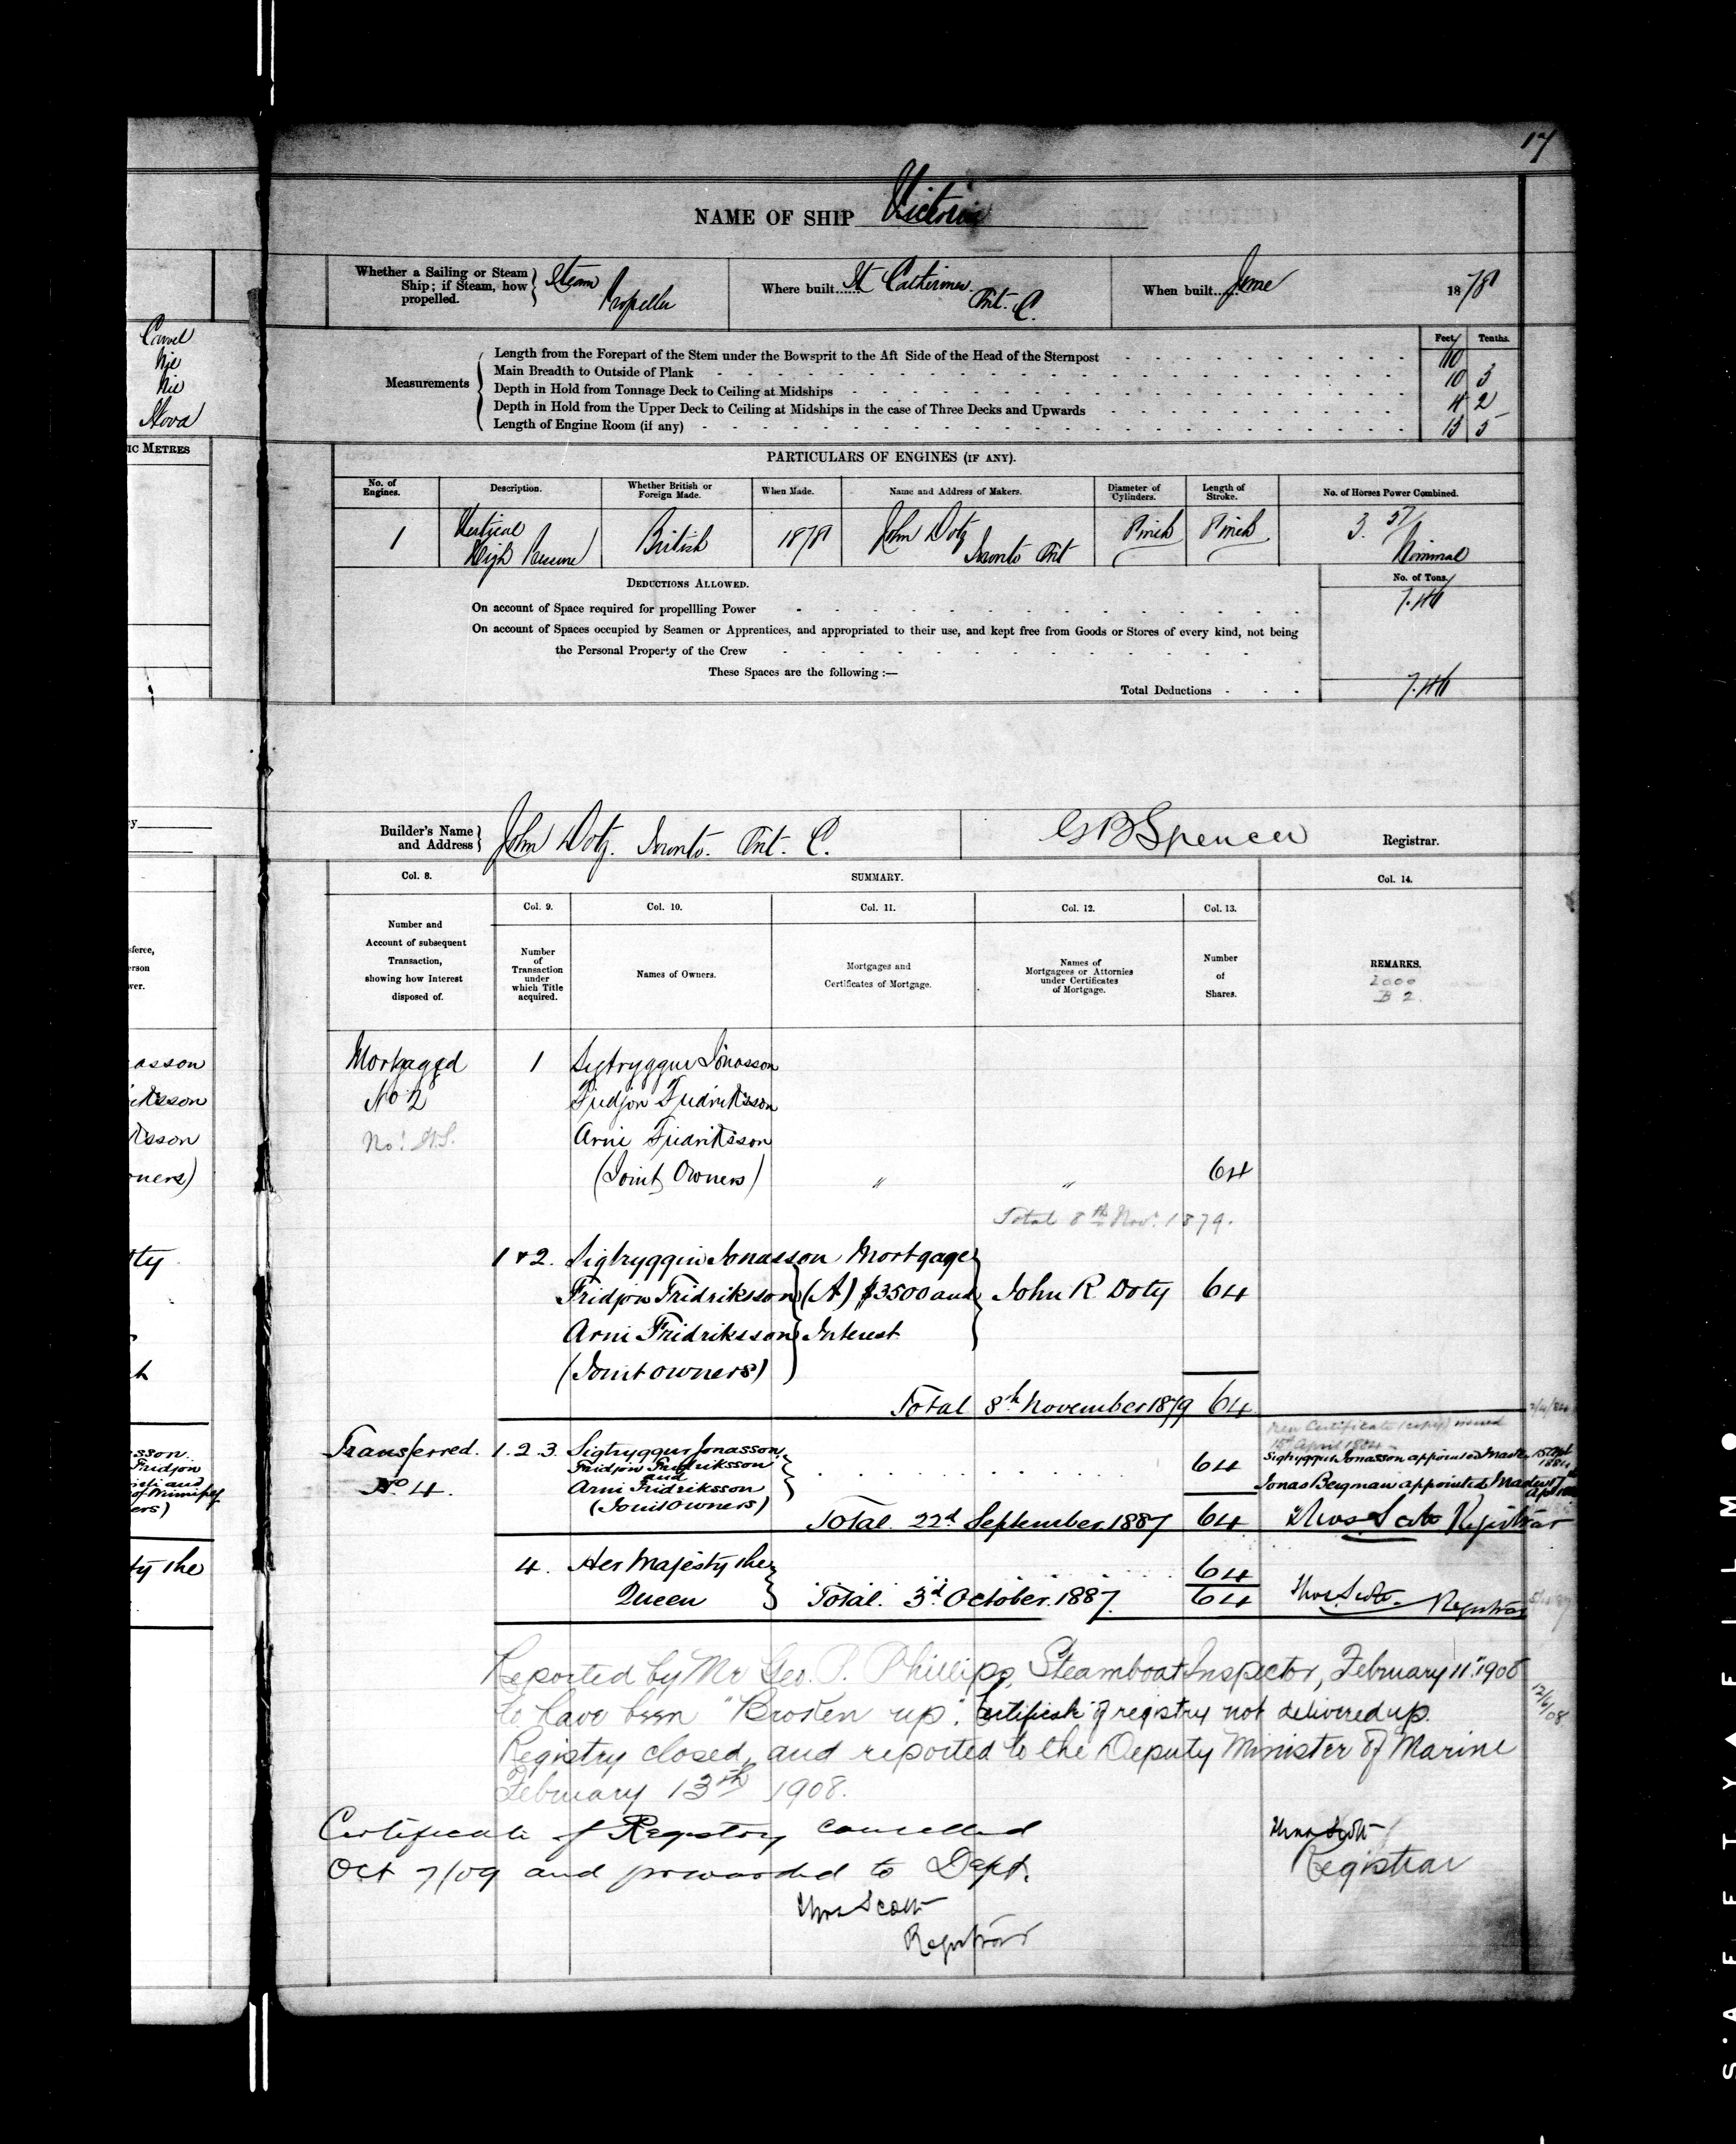 17
NAME OF SHIP Victoria
Whether a Sailing or Steam Ship; if Steam, how propelled. Steam Propeller
Where built...... St Catherines. Ont. C.
When built...... June 1878
Camel
Nil
Nil
IC METRES
Feet. Tenths.
Measurements
Length from the Forepart of the Stem under the Bowsprit to the Aft Side of the Head of the Sternpost
Main Breadth to Outside of Plank 10 3
Depth in Hold from Tonnage Deck to Ceiling at Midships 4 2
Depth in Hold from the Upper Deck to Ceiling at Midships in the case of Three Decks and Upwards
Length of Engine Room (if any) 15 5
PARTICULARS OF ENGINES (IF ANY).
No. of Engines. Description. Whether British or Foreign Made. When Made. Name and Address of Makers. Diameter of Cylinders. Length of Stroke. No. of Horses Power Combined.
1 Vertical High Pressure British 1878 John Doty Toronto Ont inch inch 3. 57 Nominal
DEDUCTIONS ALLOWED.
No. of Tons.
On account of Space required for propellling Power 7.46
On account of Spaces occupied by Seamen or Apprentices, and appropriated to their use, and kept free from Goods or Stores of every kind, not being
the Personal Property of the Crew
These Spaces are the following :—
Total Deductions 7.46
Builder's Name and Address John Doty. Toronto. Ont. C.
G B Spencer Registrar.
Col. 8. SUMMARY. Col. 14.
Col. 9. Col. 10. Col. 11. Col. 12. Col. 13.
Number and Account of subsequent Transaction, showing how Interest disposed of.
Number of Transaction under which Title acquired.
Names of Owners.
Mortgages and Certificates of Mortgage.
Names of Mortgagees or Attornies under Certificates of Mortgage.
Number of Shares.
REMARKS.
2000
B 2.
Mortgaged 1 Sigtryggur Jonasson
No 2 Fridjon Fridriksson
Arni Fridriksson
(Joint Owners) " " 64
Total 8th Nov. 1879.
1 & 2. Sigtryggur Jonasson Mortgage
Fridjon Fridriksson (A) $3500 and John R Doty 64
Arni Fridriksson Interest
(Joint owners)
Total 8th November 1879 64
New Certificate (copy) issued
15th April 1884
Transferred. 1. 2. 3. Sigtryggur Jonasson
Fridjon Fridriksson 64
No 4. and
Arni Fridriksson
(Joint Owners)
Sigtryggur Jonasson appointed Master 15 Apl 1884
Jonas Bergman appointed Master
Total. 22d September. 1887 64 Thos Scott Registrar
4. Her Majesty the 64
Queen Total. 3d October. 1887. 64 Thos Scott Registrar
Reported by Mr Geo. P. Phillips, Steamboat Inspector, February 11th 1908
to have been "Broken up". Certificate of registry not delivered up.
12/6/08
Registry closed, and reported to the Deputy Minister of Marine
February 13th 1908.
Thos Scott
Registrar
Certificate of Registry cancelled
Oct 7/09 and forwarded to Dept.
Thos Scott
Registrar